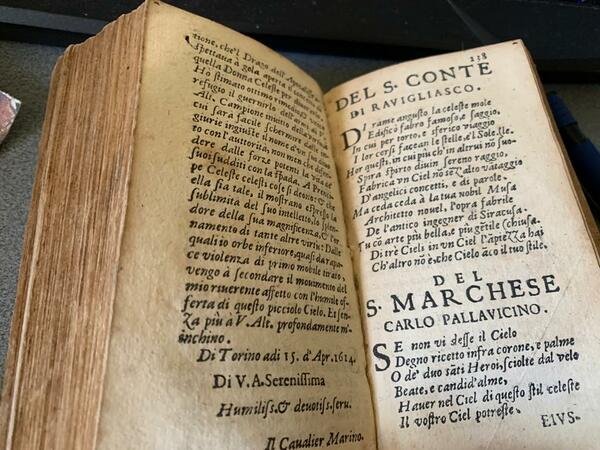 tione, che'l Drago dell'Apocalisse
spettaua à
quella Donna Celeste
Hò stimato ottimo rimedio
refugio il guernirlo dell'
Alt. Campione inuitto della
cui sarà facile schermire dalle in-
giurie ingiuste il nome d'vn suo
to con l'autorità, non men che difen-
dere dalle forze potenti la vita de'
suoi sudditi con la spada. A Prenci-
pe Celeste celesti cose si deono: E che
ella sia tale, il mostrano espresso la
sublimità del suo intelletto, lo splen-
dore della sua magnificenza, & l'or-
namento di tante altre virtù: Dalle
quali io orbe inferiore, quasi da rapa-
ce violenza di primo mobile tirato,
vengo à secondare il mouimento del
mio riuerente affetto con l'humile of-
ferta di questo picciolo Cielo. Et sen-
za più à V. Alt. profondamente m'in-
chino.
Di Torino adi 15. d'Apr. 1614.
Di V. A. Serenissima
Humiliss. & deuotiss. seru.
Il Caualier Marino.
238
DEL S. CONTE
DI RAVIGLIASCO.
DI rame angusto la celeste mole
Edificò fabro famoso, e saggio,
In cui per torto, e sferico viaggio
I lor corsi facean le stelle, e'l Sole.
Hor questi, in cui più ch'in altrui no suo-
Spira sparto diuin sereno raggio,
Fabrica vn Ciel no se d'alto vātaggio
D'angelici concetti, e di parole.
Ma ceda ceda à la tua nobil Musa
Architetto nouel, l'opra fabrile
De l'antico ingegner di Siracusa.
Tu cō arte più bella, e più gētile
Di trè Cieli in vn Ciel l'āpiezza hai
Ch'altro nō è, che Cielo āco il tuo stile.
DEL
S. MARCHESE
CARLO PALLAVICINO.
SE non vi desse il Cielo
Degno ricetto infra corone, e palme
O de' duo sāti Heroi, sciolte dal velo
Beate, e candid'alme,
Hauer nel Ciel di questo stil celeste
Il vostro Ciel potreste.
EIVS-